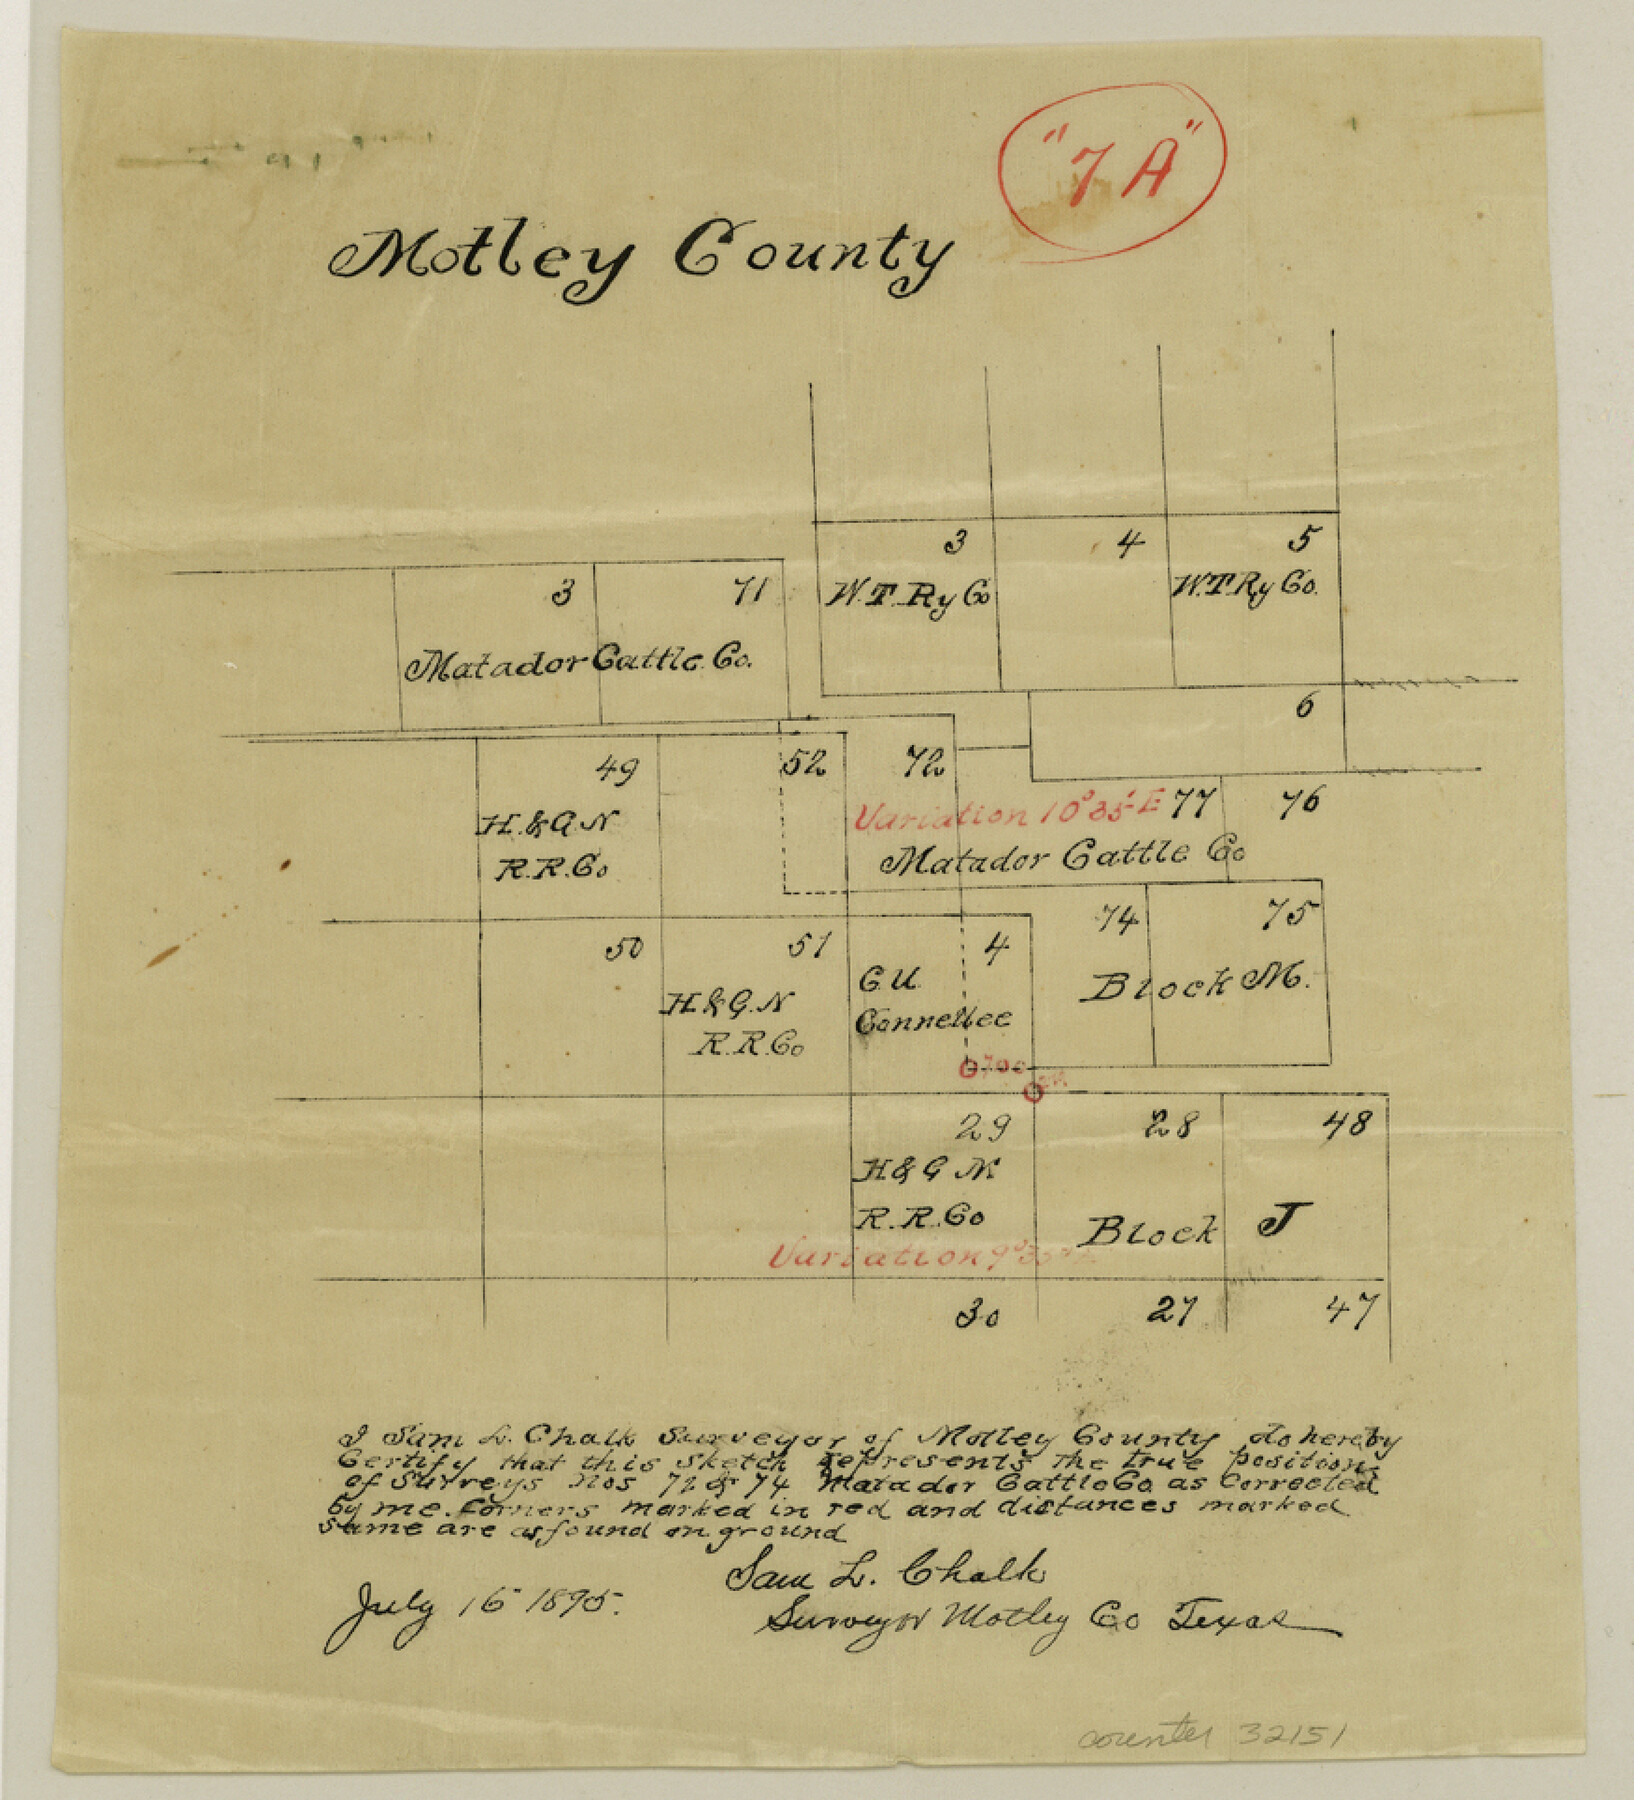 "7 A"
Motley County
3 4 5
W.T. Ry Co W.T. Ry Co.
3 71
Matador Cattle Co.
6
49 52 72
Variation 10° 35' E 77 76
H. & G. N
R. R. Co
Matador Cattle Co
74 75
50 51 4
C. U.
Connellee
Block M.
H & G. N
R. R. Co
700
29 28 48
H & G N
R. R. Co
Block J
Variation 9°
30 27 47
I Sam L. Chalk Surveyor of Motley County do hereby
Certify that this sketch represents the true position
of Surveys Nos 72 & 74 Matador Cattle Co as Corrected
by me. Corners marked in red and distances marked
same are as found on ground
Sam L. Chalk
July 16 1895.
Surveyor Motley Co Texas
counter 32151